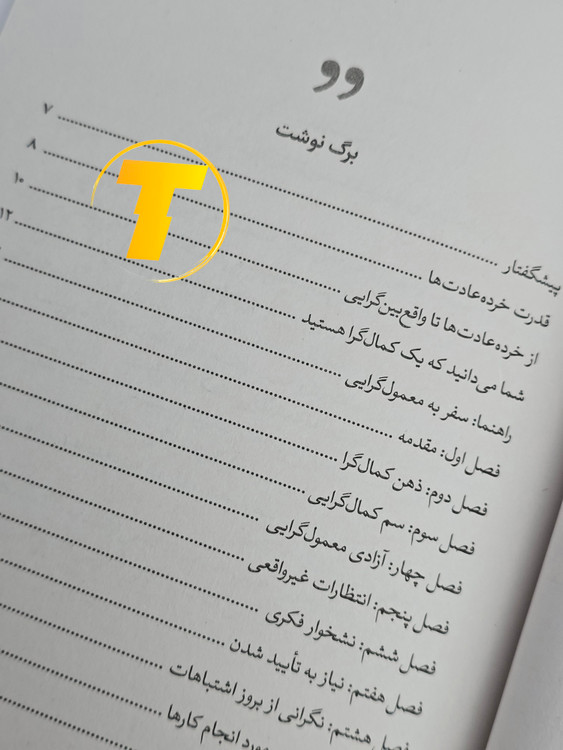 برگ نوشت
پیشگفتار ۷
قدرت خرده‌عادت‌ها ۸
از خرده‌عادت‌ها تا واقع‌بین‌گرایی ۱۰
شما می‌دانید که یک کمال‌گرا هستید ۱۲
راهنما: سفر به معمول‌گرایی
فصل اول: مقدمه
فصل دوم: ذهن کمال‌گرا
فصل سوم: سم کمال‌گرایی
فصل چهار: آزادی معمول‌گرایی
فصل پنجم: انتظارات غیرواقعی
فصل ششم: نشخوار فکری
فصل هفتم: نیاز به تأیید شدن
فصل هشتم: نگرانی از بروز اشتباهات
انجام کارها
T